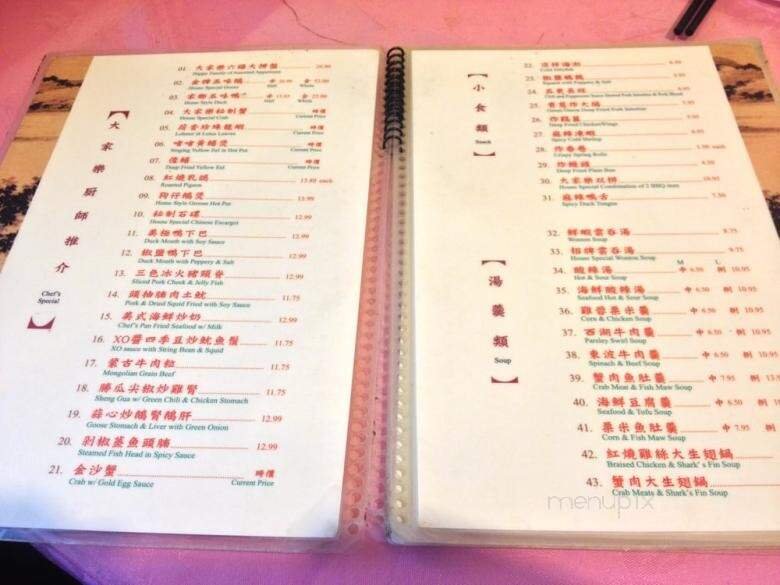 大家樂廚師推介
Chef's
Special
01. 大家樂六福大拼盤
Happy Family of Assorted Appetizers
02. 金牌五味鵝
House Special Goose Half Whole
03. 家鄉五味鴨
Home Style Duck Half Whole
04. 大家樂秘制蟹 時價
House Special Crab Current Price
05. 荷香珍珠龍蝦 時價
Lobster in Lotus Leaves Current Price
06. 啫啫黃鱔煲 時價
Singing Yellow Eel in Hot Pot Current Price
07. 時價
Deep Fried Yellow Eel Current Price
08. 紅燒乳鴿 13.88 each
Roasted Pigeon
09. 狗仔鵝煲 13.99
Home Style Goose Hot Pot
10. 秘制石碟 12.99
House Special Chinese Escargot
11. 美極鴨下巴 12.99
Duck Mouth with Soy Sauce
12. 椒鹽鴨下巴 12.99
Duck Mouth with Peppery & Salt
13. 三色冰火豬頸脊 12.99
Sliced Pork Cheek & Jelly Fish
14. 頭抽腩肉土魷 11.75
Pork & Dried Squid Fried with Soy Sauce
15. 美式海鮮炒奶 12.99
Chef's Pan Fried Seafood w/ Milk
16. XO醬四季豆炒魷魚鬚 11.75
XO sauce with String Bean & Squid
17. 蒙古牛肉粒 11.75
Mongolian Grain Beef
18. 勝瓜尖椒炒雞腎 11.75
Sheng Gua w/ Green Chili & Chicken Stomach
19. 蒜心炒鵝腎鵝肝 12.99
Goose Stomach & Liver with Green Onion
20. 剁椒蒸魚頭腩 12.99
Steamed Fish Head in Spicy Sauce
21. 金沙蟹 時價
Crab w/ Gold Egg Sauce Current Price
小食類
Snack
22.
Cold Jellyfish
23. 椒鹽鴨舌
24.
25.
26.
Deep Fried Chicken Wings
27. 麻辣凍蝦
Spicy Cold Shrimp
28. 炸春卷
Crispy Spring Rolls
29. 炸饅頭
Deep Fried Plain Bun
30. 大家樂双拼 10.95
House Special Combination of 2 BBQ item
31. 麻辣鴨舌 7.50
Spicy Duck Tongue
湯羹類
Soup
32. 鮮蝦雲吞湯 8.75
Wonton Soup
33. 招牌雲吞湯 9.75
House Special Wonton Soup M L
34. 酸辣湯 中 6.50 例 10.95
Hot & Sour Soup
35. 海鮮酸辣湯 中 6.50 例 10.95
Seafood Hot & Sour Soup
36. 雞蓉粟米羹 中 6.50 例 10.95
Corn & Chicken Soup
37. 西湖牛肉羹 中 6.50 例 10.95
Parsley Swirl Soup
38. 東波牛肉羹 中 6.50 例 10.95
Spinach & Beef Soup
39. 蟹肉魚肚羹 中 7.95 例 13.
Crab Meat & Fish Maw Soup
40. 海鮮豆腐羹 中 6.50 例 10.
Seafood & Tofu Soup
41. 粟米魚肚羹 中 6.95 例
Corn & Fish Maw Soup
42. 紅燒雞絲大生翅鍋
Braised Chicken & Shark's Fin Soup
43. 蟹肉大生翅鍋
Crab Meats & Shark's Fin Soup
menupix